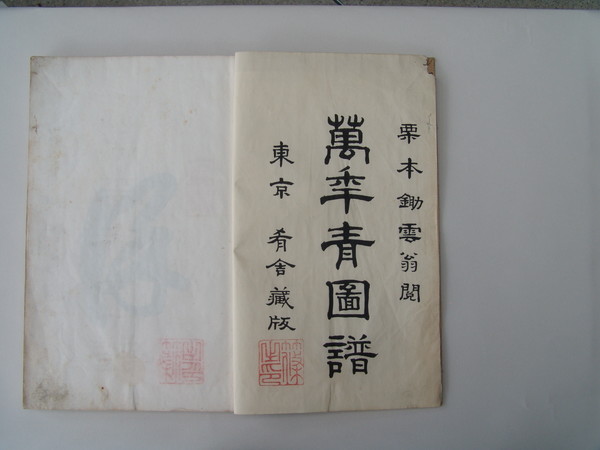 栗本鋤雲翁閲
萬年青圖譜
東京 肴舎藏版